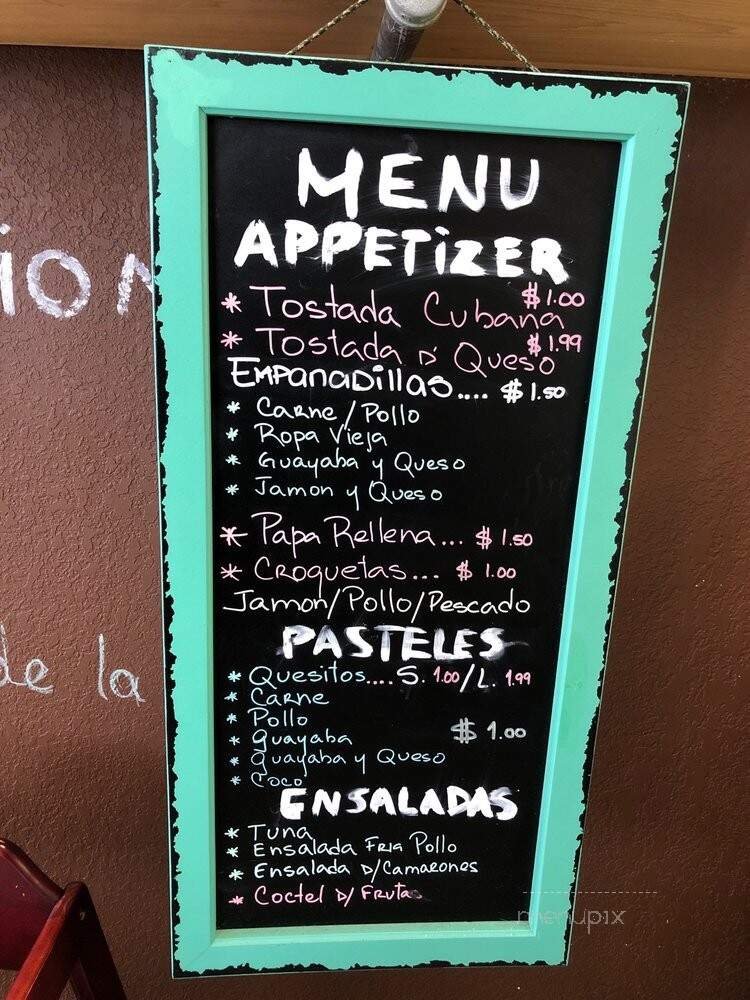 MENU
APPETIZER
* Tostada Cubana $1.00
* Tostada D' Queso $1.99
EMPANADILLAS.... $1.50
* Carne/Pollo
* Ropa Vieja
* Guayaba y Queso
* Jamon y Queso
* Papa Rellena... $1.50
* Croquetas... $1.00
Jamon/Pollo/Pescado
PASTELES
* Quesitos....S. 1.00/L. 1.99
* Carne
* Pollo
* guayaba $1.00
* guayaba y Queso
* Coco
ENSALADAS
* Tuna
* Ensalada Fria Pollo
* Ensalada D/Camarones
* Coctel D/ Frutas
ion
de la
menupix